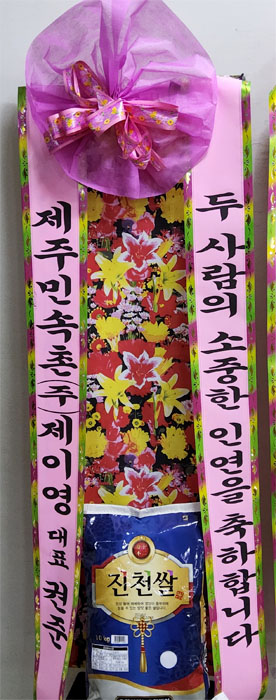 제주민속촌(주)제이영 대표 권준
두 사람의 소중한 인연을 축하합니다
진천쌀
10 kg